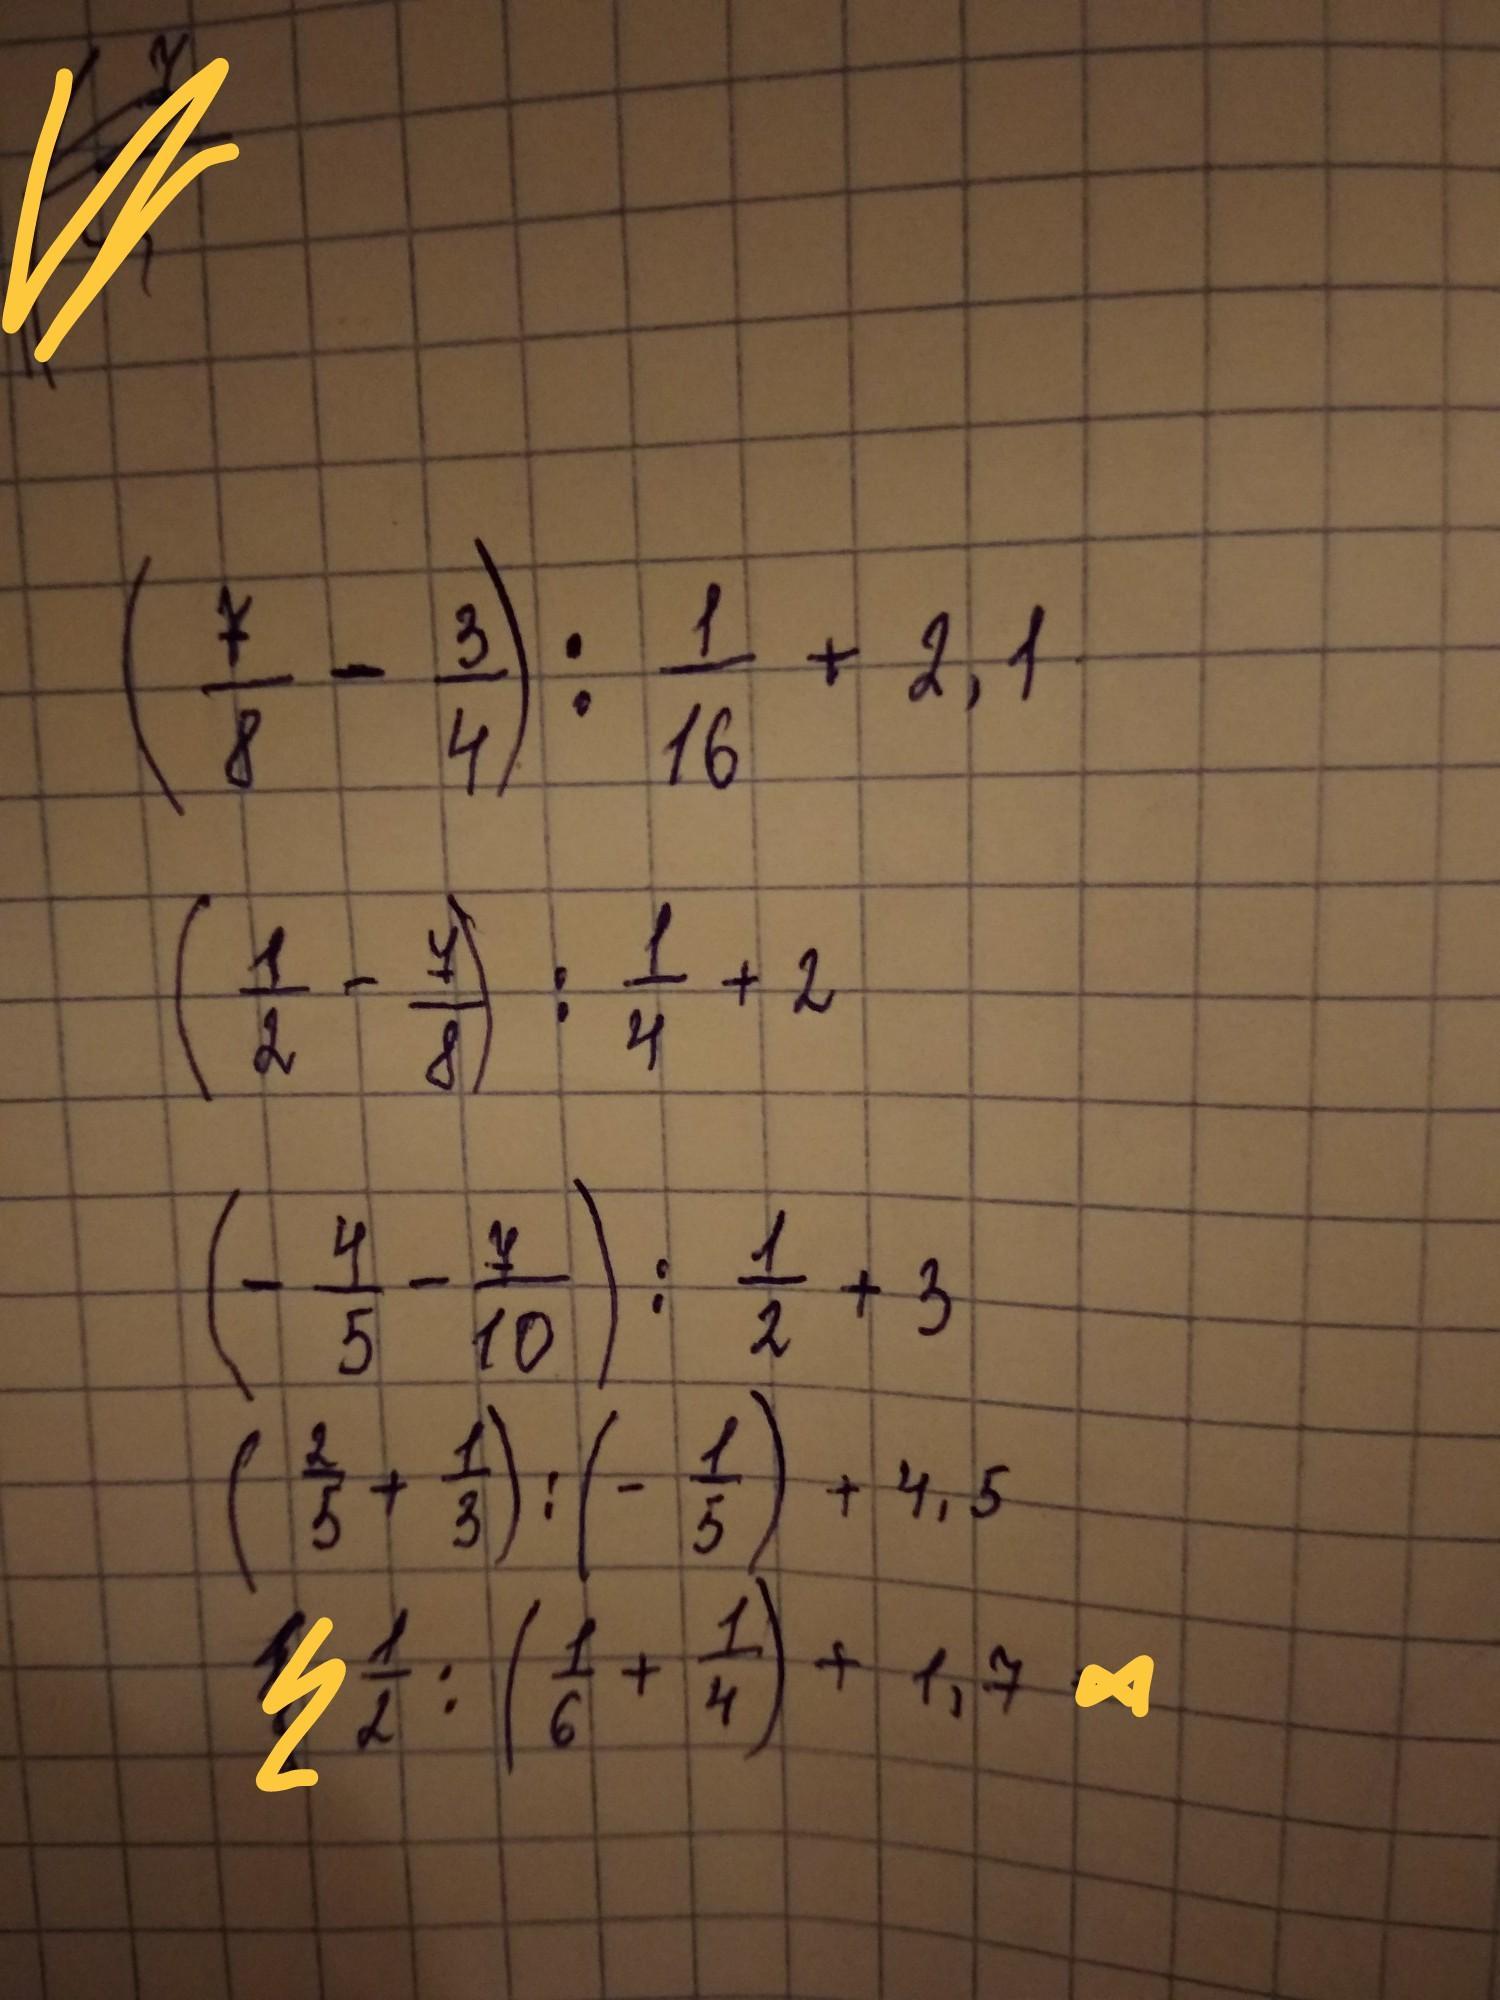 (7/8 - 3/4) : 1/16 + 2,1
(1/2 - 7/8) : 1/4 + 2
(- 4/5 - 7/10) : 1/2 + 3
(2/5 + 1/3) : (- 1/5) + 4,5
1/2 : (1/6 + 1/4) + 1,7